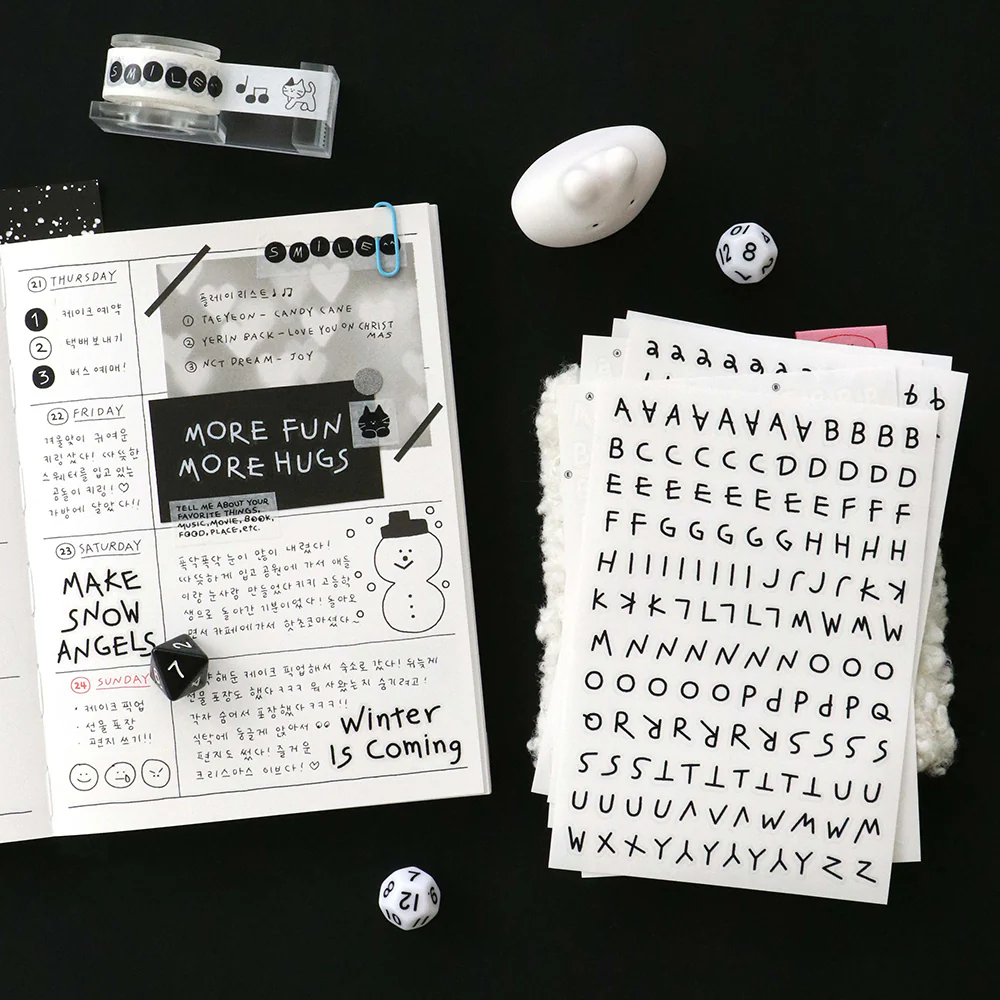 SMILE
SMILE
21 THURSDAY
1 케이크 예약
2 택배 보내기
3 버스 예매!
플레이리스트♩♪♫
① TAEYEON - CANDY CANE
② YERIN BACK - LOVE YOU ON CHRIST
MAS
③ NCT DREAM - JOY
22 FRIDAY
겨울맞이 귀여운
키링 샀다! 따뜻한
스웨터를 입고 있는
곰돌이 키링!♡
가방에 달았다!!
MORE FUN
MORE HUGS
TELL ME ABOUT YOUR
FAVORITE THINGS,
MUSIC, MOVIE, BOOK,
FOOD, PLACE, etc.
23 SATURDAY
MAKE
SNOW
ANGELS
폭닥폭닥 눈이 많이 내렸다!
따뜻하게 입고 공원에 가서 애들
이랑 눈사람 만들었다 키키 고등학
생으로 돌아간 기분이었다! 돌아오
면서 카페에 가서 핫초코 마셨다~
24 SUNDAY
· 케이크 픽업
· 선물 포장
· 편지 쓰기!!
해둔 케이크 픽업해서 숙소로 갔다! 뒤늦게
선물 포장도 했다 ㅋㅋㅋ 뭐 사왔는지 숨기려고!
각자 숨어서 포장했다 ㅋㅋㅋ!!
식탁에 둥글게 앉아서
편지도 썼다! 즐거운
크리스마스 이브다!♡
Winter
Is Coming
7 2
12 10 4 8 7 2
7 8 12 9 10
a a a a a a a
b b
A A A A A A A B B B B
B C C C C C D D D D D
E E E E E E E E F F F
F F G G G G G H H H H
H I I I I I I I J J J K K
K K K L L L L L M W M W
M N N N N N N O O O
O O O O O P P P P Q
Q R R R R R R S S S S
S S S T T T T T T U U
U U U U V V W M W M
W X X Y Y Y Y Y Y Z Z